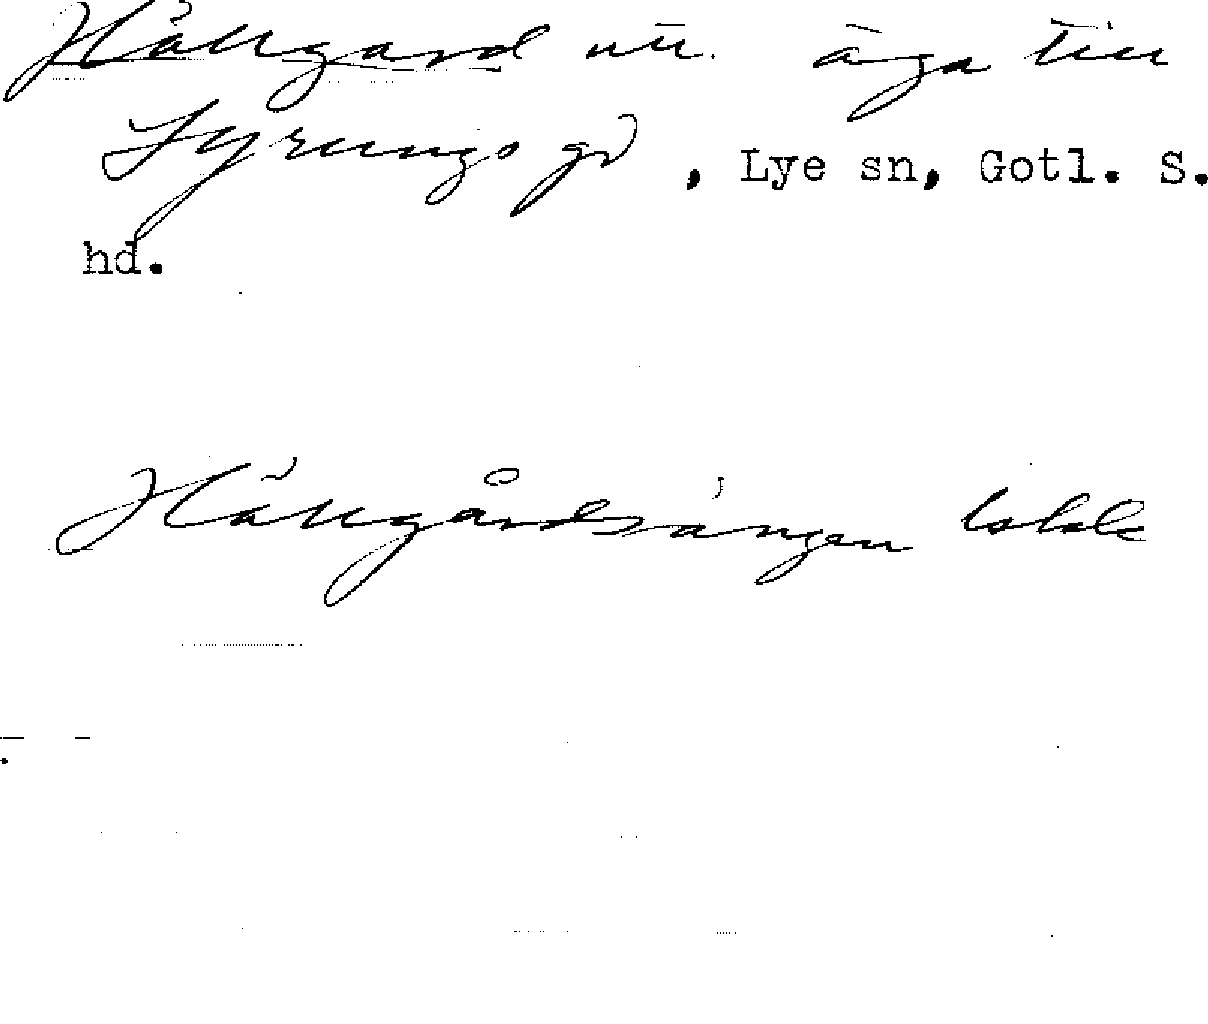 Hällgard nu. äga till
Tyrungs gd, Lye sn, Gotl. S.
hd.
Hällgårdsängen